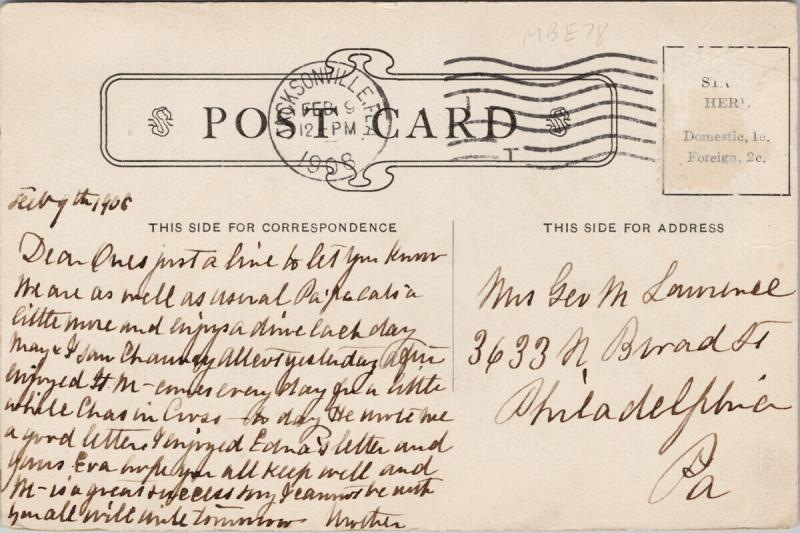 MBE78
JACKSONVILLE, FLA.
FEB 9
12 PM
1908
POST CARD
STA
HERE
Domestic, 1c.
Foreign, 2c.
Feb 9th 1908
THIS SIDE FOR CORRESPONDENCE
THIS SIDE FOR ADDRESS
Dear Ones just a line to let you know
we are as well as usual Papa eats a
little more and enjoys a drive each day
May & I saw Chauncy Allcot yesterday
enjoyed it M- comes every day for a little
while Chas in Cross to day He wrote me
a good letter I enjoyed Edna's letter and
yours Eva hope you all keep well and
M- is a great success sorry I cannot be with
you all will write tomorrow Mother
Mrs Geo M Lawrence
3633 N Broad St
Philadelphia
Pa